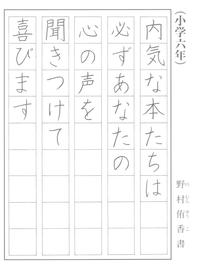 (小学六年)
野村侑香書
内気な本たちは
必ずあなたの
心の声を
聞きつけて
喜びます